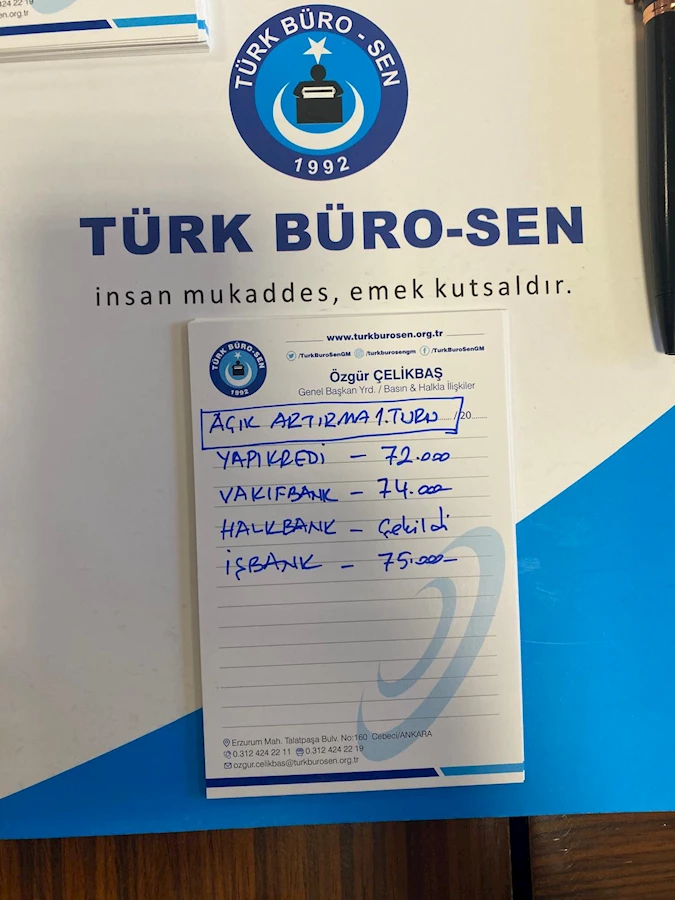 424 22 19
sen.org.tr
TÜRK BÜRO - SEN
1992
TÜRK BÜRO-SEN
insan mukaddes, emek kutsaldır.
TÜRK BÜRO-SEN
1992
www.turkburosen.org.tr
/TurkBuroSenGM /turkburosengm /TurkBuroSenGM
Özgür ÇELİKBAŞ
Genel Başkan Yrd. / Basın & Halkla İlişkiler
AÇIK ARTIRMA 1.TURU ...... / 20......
YAPIKREDİ - 72.000
VAKIFBANK - 74.000
HALKBANK - Çekildi
İŞBANK - 75.000
Erzurum Mah. Talatpaşa Bulv. No:160 Cebeci/ANKARA
0.312 424 22 11 0.312 424 22 19
ozgur.celikbas@turkburosen.org.tr